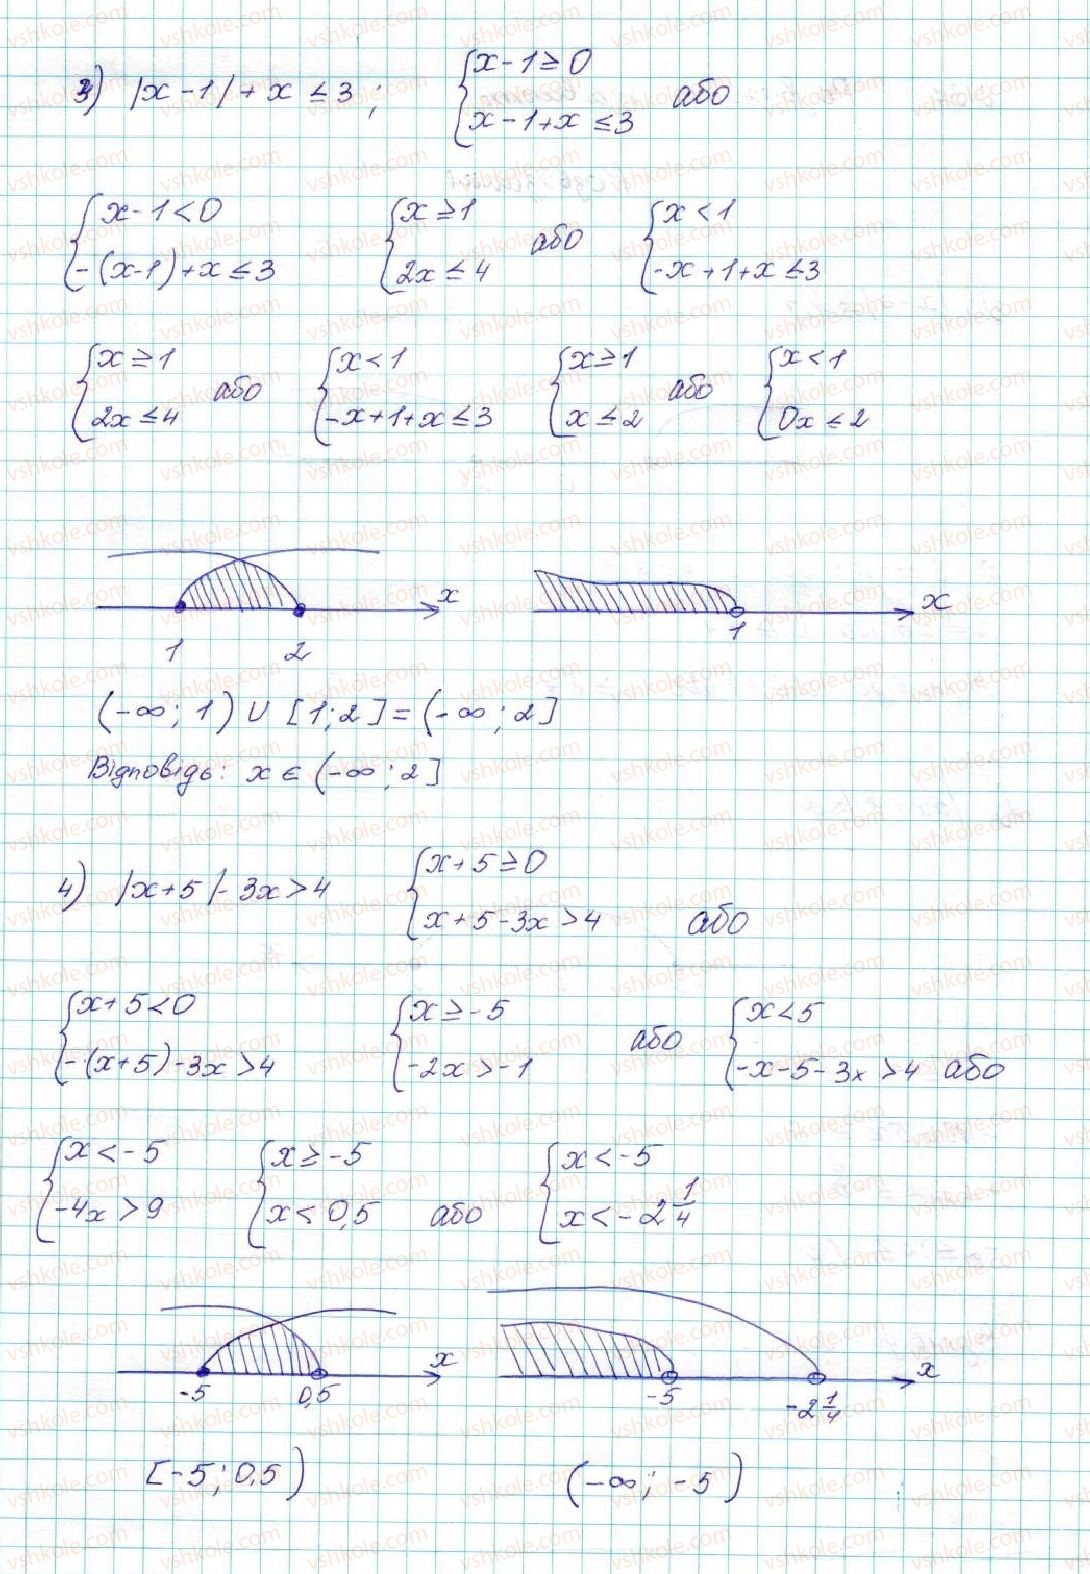 3) |x-1|+x ≤ 3 ; { x-1 ≥ 0 ; x-1+x ≤ 3 або
{ x-1 < 0 ; -(x-1)+x ≤ 3 { x ≥ 1 ; 2x ≤ 4 або { x < 1 ; -x+1+x ≤ 3
{ x ≥ 1 ; 2x ≤ 4 або { x < 1 ; -x+1+x ≤ 3 { x ≥ 1 ; x ≤ 2 або { x < 1 ; 0x ≤ 2
x x
1 2 1
(-∞; 1) ∪ [1; 2] = (-∞; 2]
Відповідь: x ∈ (-∞; 2]
4) |x+5|-3x>4 { x+5 ≥ 0 ; x+5-3x > 4 або
{ x+5<0 ; -(x+5)-3x>4 { x ≥ -5 ; -2x > -1 або { x<5 ; -x-5-3x > 4 або
{ x < -5 ; -4x > 9 { x ≥ -5 ; x < 0,5 або { x < -5 ; x < -2 1/4
x x
-5 0,5 -5 -2 1/4
[-5; 0,5) (-∞; -5)
vshkole.com